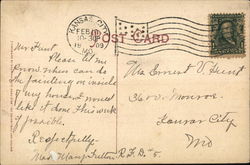 KANSAS CITY
FEB
1909
MO.
POST CARD
Mr Hunt
Please let me
know when can do
the painting on inside
of my house. I would
like it done this week
if possible.
Respectfully
Miss Mary Dutton R.F.D. #5.
Mrs Ernest V. Hunt
Kansas City
Mo